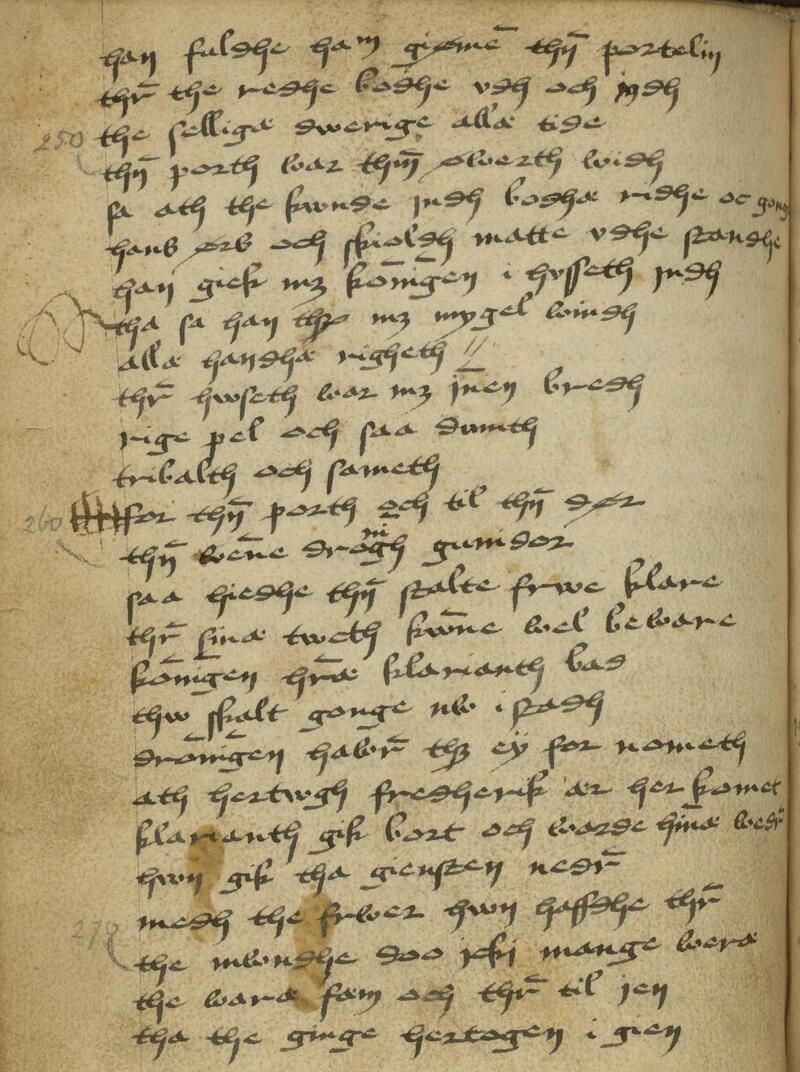 han fuldhe ham giømē thn̄ portelin
thr̄ the redhe bodhe vdh och indh
250 the selligæ dwerige allæ tide
thn̄ porth war thm̄ øwerth widh
sa ath the kwnde indh bodhæ ridhe oc gong
hans ørs och skioldh matte vdhe standhe
han giek mz kōnīgen i hvsseth indh
tha sa han thz mz mygel windh
allæ handhæ righeth //
thr̄ hwseth war mz īnen bredh
rige pel och saa dunith
tribalth och sameth
260 for thn̄ porth och til thn̄ dør
thn̄ wēne dronīgh gunidor
saa hiedhe thn̄ stalte frwe klare
thr̄ sinæ tweth kwn̄e wel beware
kōnīgen hr̄æ klarianth bad
thw skalt gonge nw i stadh
drōnīgen hawr̄ thz eÿ for nometh
ath hertwgh fredherik ær her komet
klarianth gik bort och warde hīnæ wedr̄
hwn gik tha giensten nedr̄
medh the frwer hwn haffdhe thr̄
270 the mwndhe doo icki mange weræ
the waræ fæm och thr̄ til ien
tha the ginge hertogen i gien